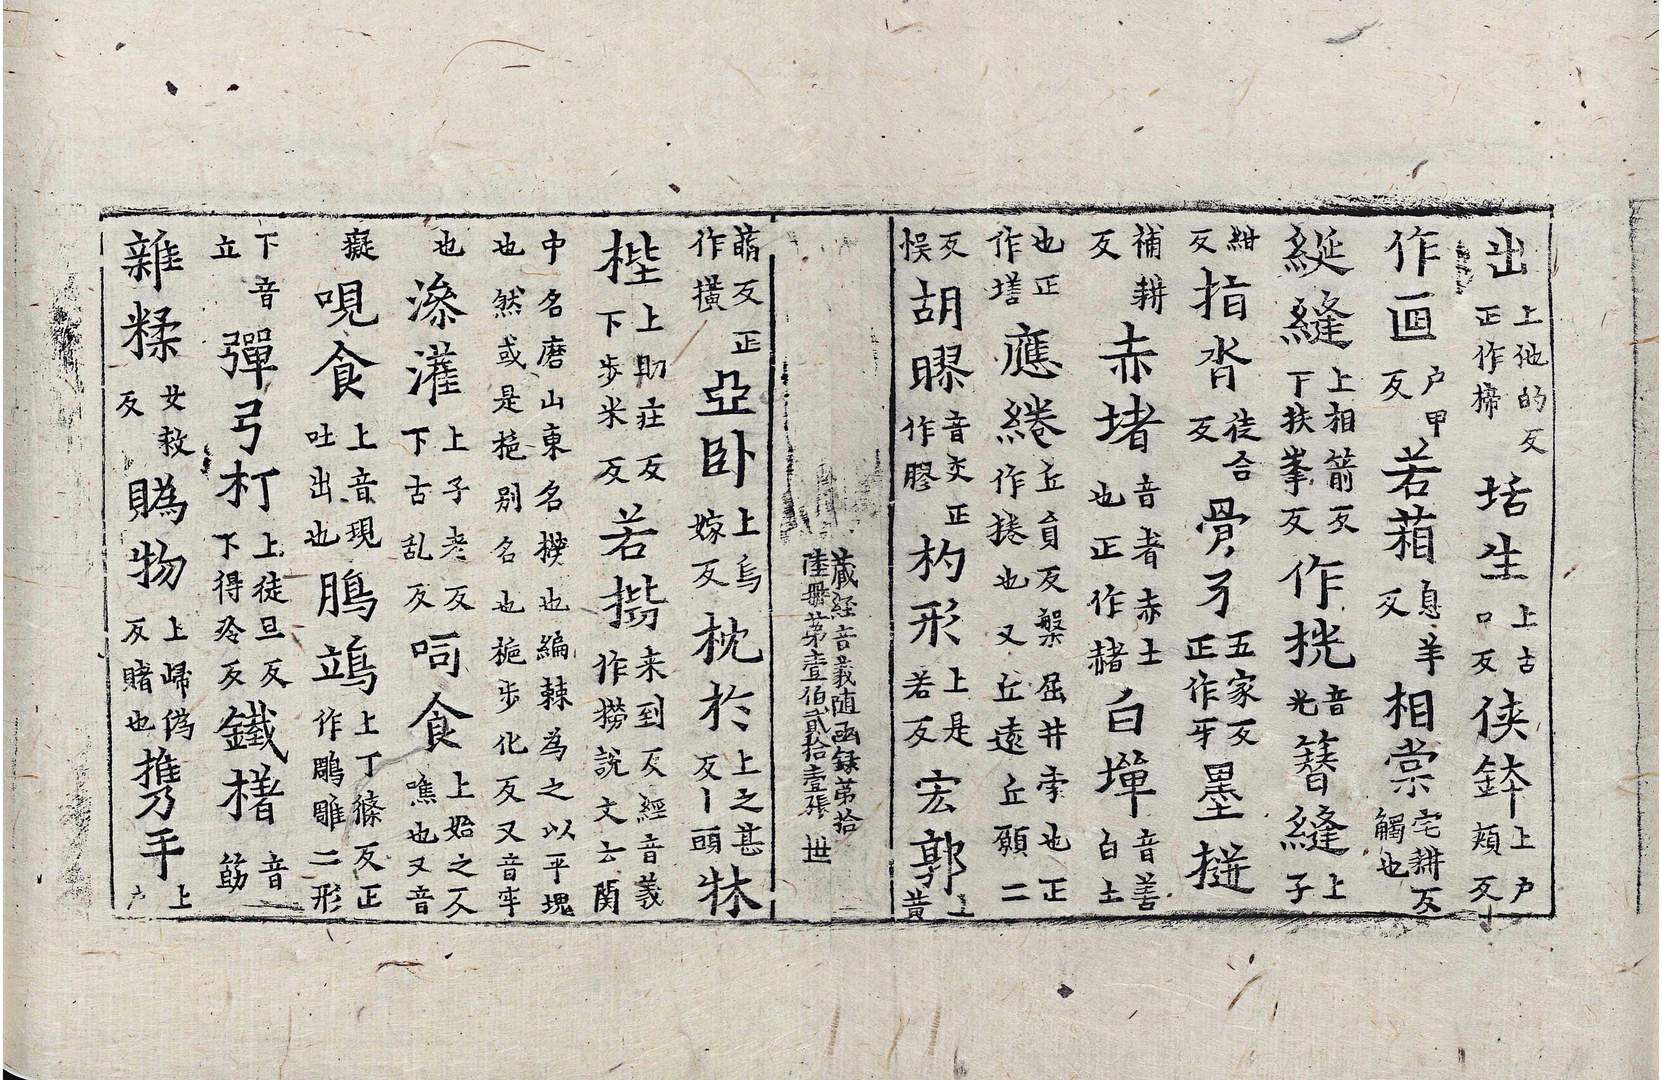 出上他的反正作㨹㧓生上古口反侠鉢上户頰反
作匣户甲反若葙息羊反相棠宅耕反觸也
綖縫上相箭反下扶峯反作挄音光簪縫上子
紺反指沓徒合反骨牙五家反正作牙墨搓
補耕反赤堵音者赤土也正作赭白墠音善白土
也正作㙮應綣丘員反槃屈井棗也正作捲也又丘遠丘願二
反悮胡䏧音交正作膠杓形上是若反宏郭上黄
藏経音義随函録苐拾陸冊苐壹伯貳拾壹張 世
萠反正作橫亞卧上烏嫁反枕於上之甚反丨頭牀
梐上助莊反下步米反若撈來到反經音義作撈說文云關
中名磨山東名櫌也編棘為之以平塊也然或是梔别名也梔步化反又音牢
也澡灌上子老反下古乱反呞食上始之反噍也又音
癡哯食上音現吐出也鵰鴆上丁絛反正作鵰雕二形
下音立彈弓打上徒旦反下得冷反鐵楮音筯
雜糅女救反賭物上歸偽反賭也㩗手上户